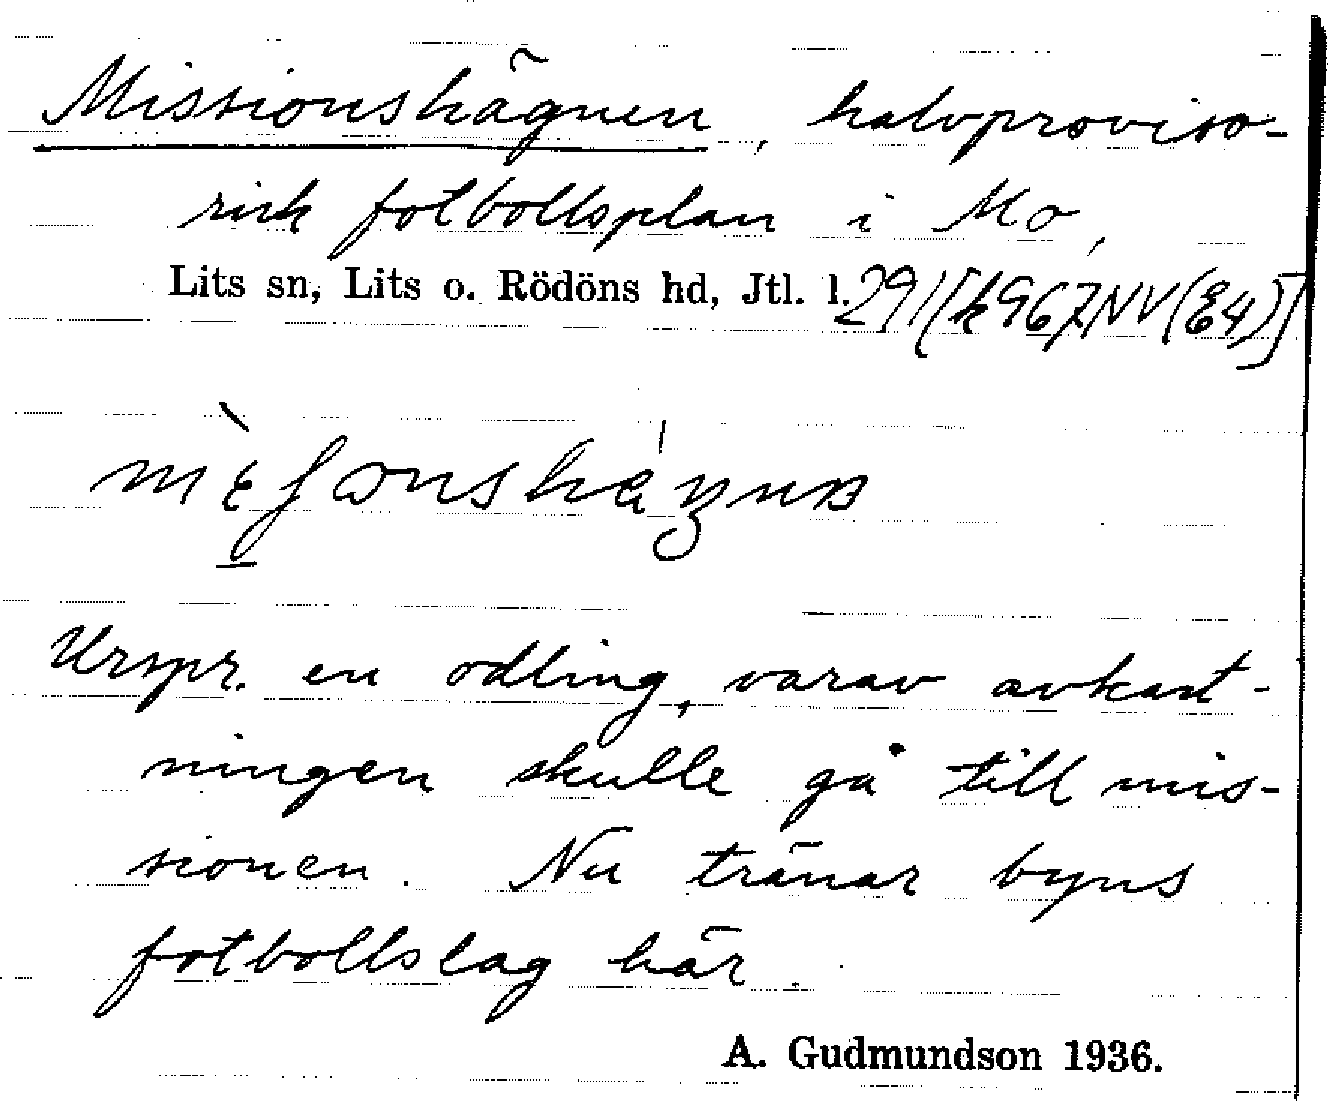 Missionshägnen, halvproviso-
risk fotbollsplan i Mo,
Lits sn, Lits o. Rödöns hd, Jtl. l. 291 [k967NV(E4)]
Urspr. en odling, varav avkast-
ningen skulle gå till mis-
sionen. Nu tränar byns
fotbollslag här.
A. Gudmundson 1936.